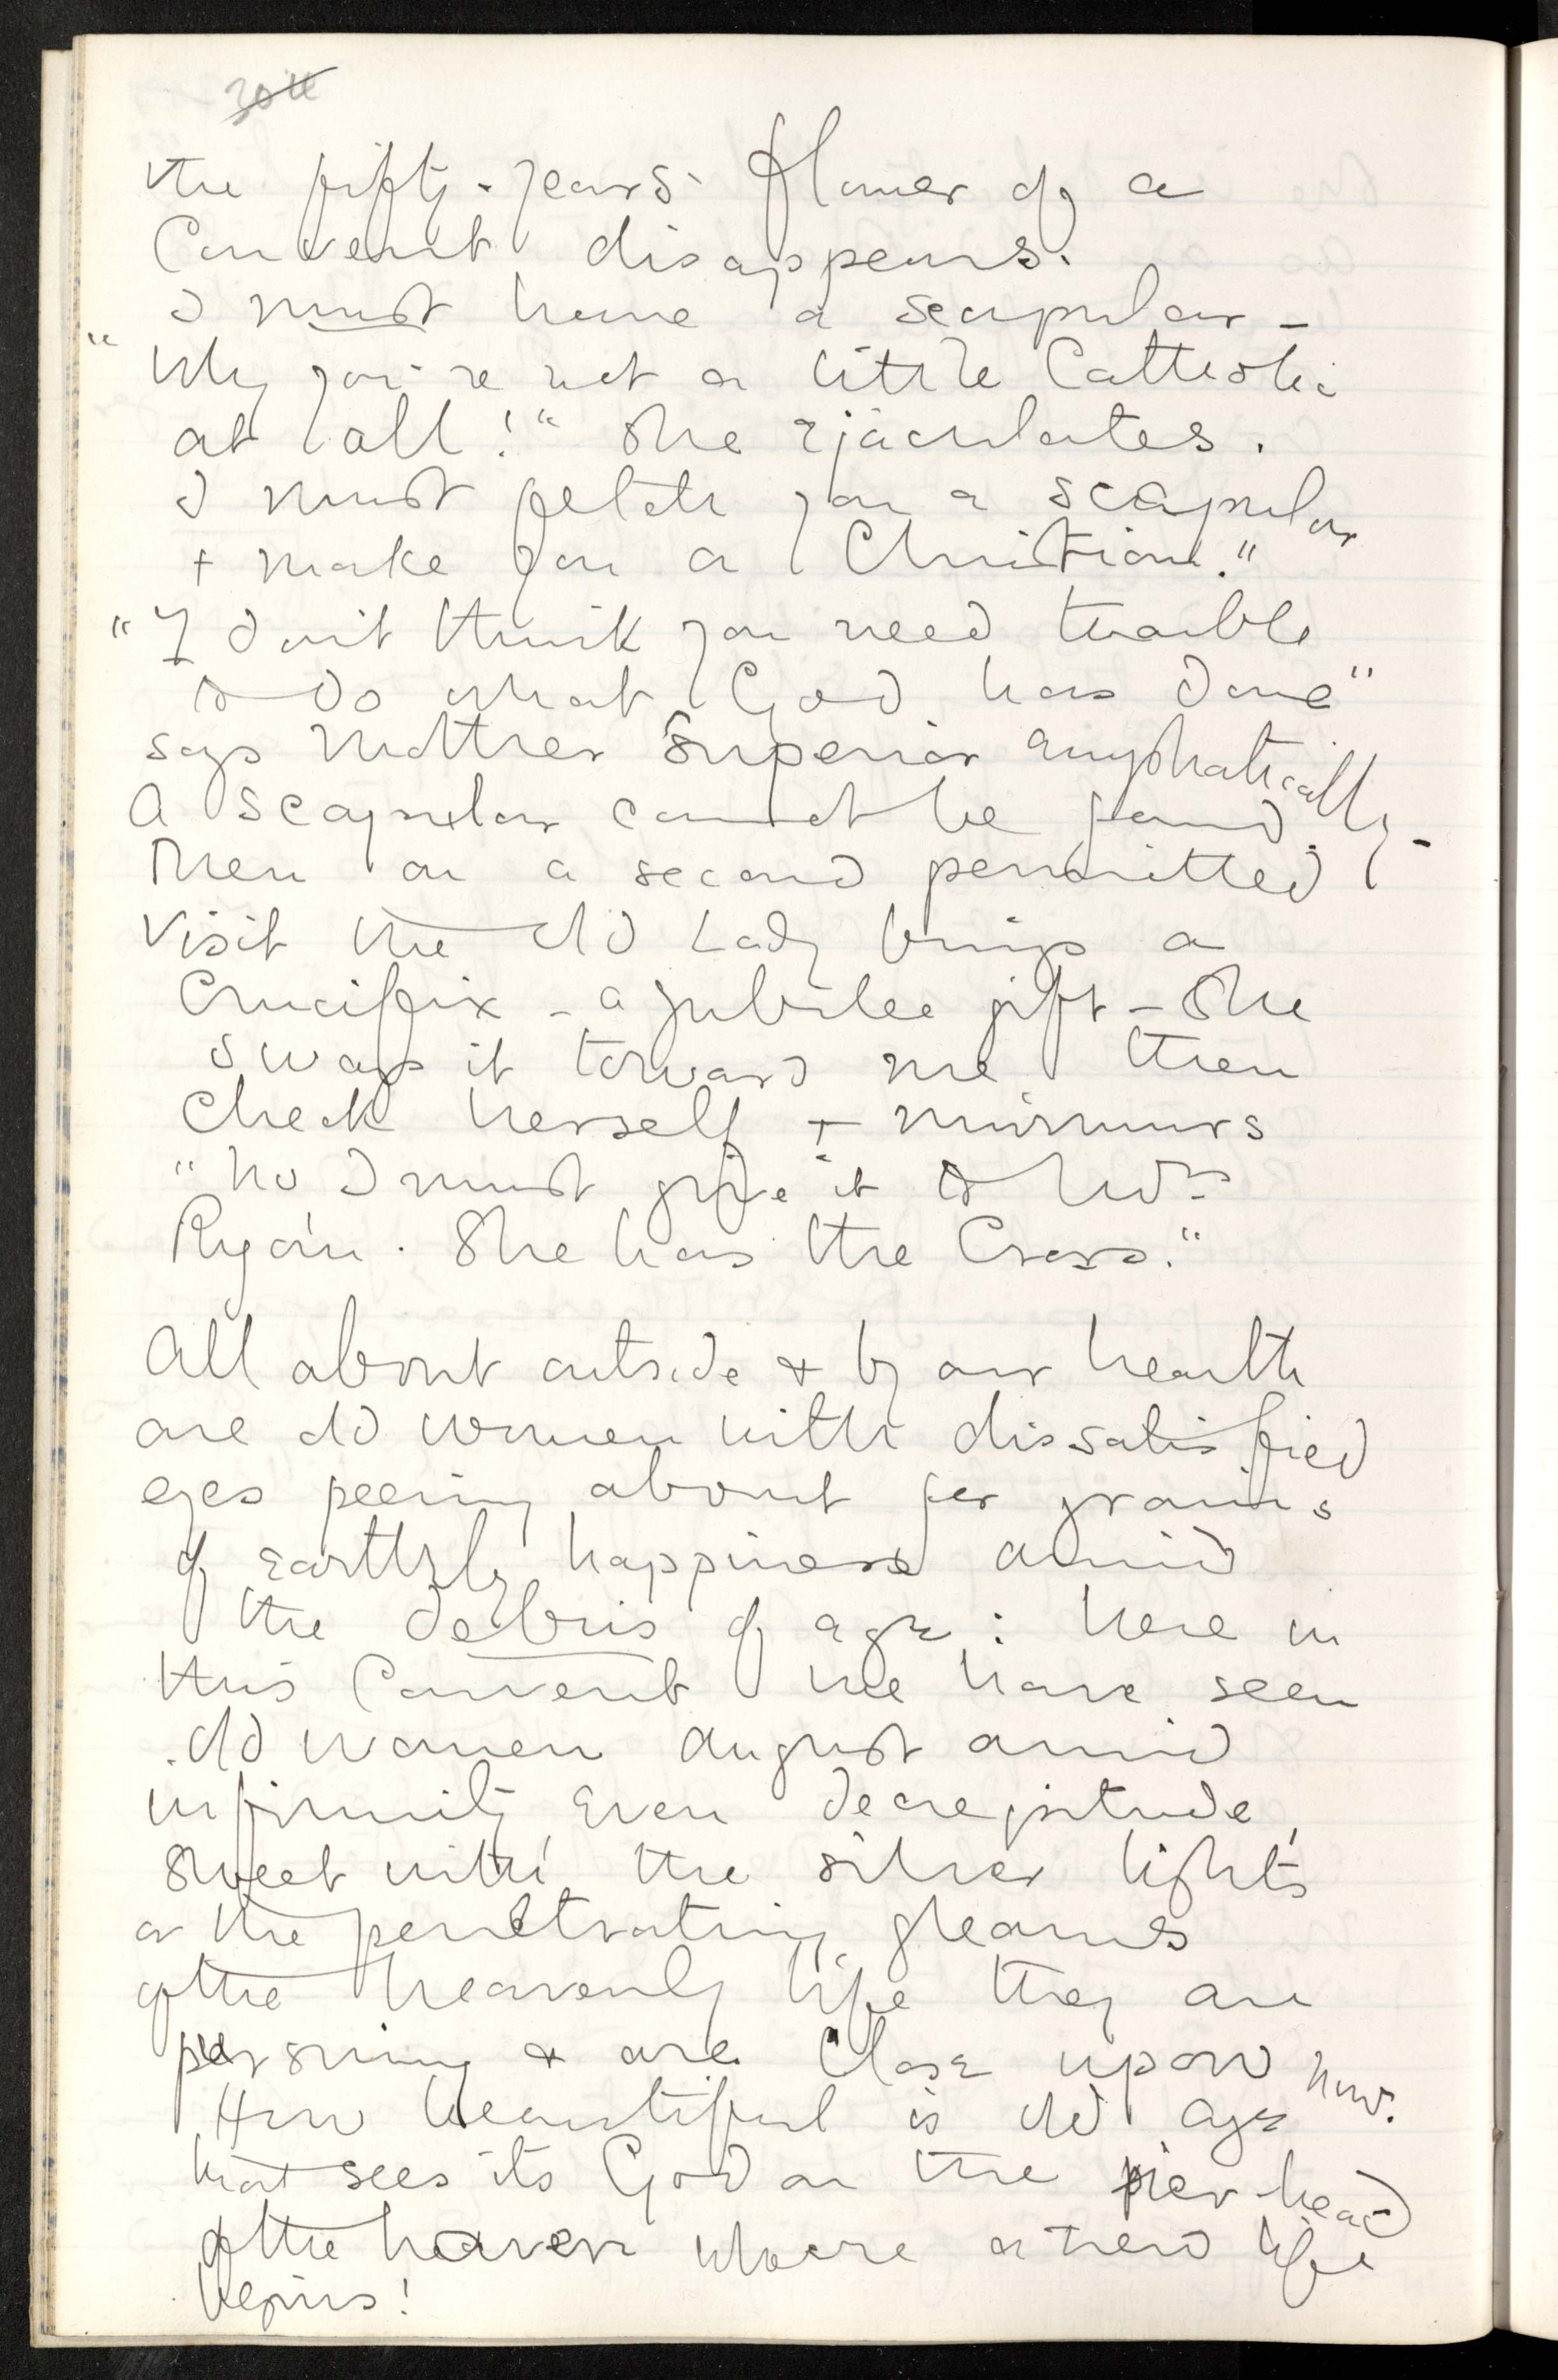 the fifty-years' flower of a
Convent disappears.
I must have a scapular –
"Why you're not a little Catholic
at all!" She ejaculates.
I must fetch you a scapular
+ make you a Christian."
"I don't think you need trouble
to do what God has done"
says Mother Superior emphatically –
A scapular cannot be found.
Then on a second permitted
visit the old Lady brings a
Crucifix – a jubilee gift – She
sways it toward me then
check herself + murmurs
"No I must give it to Mrs
Ryan. She has the Cross."
All about outside + by our hearth
are old women with dissatisfied
eyes peering about for grains
of earthly happiness amid
the debris of age: here in
this Convent we have seen
old women august amid
infirmity even decrepitude,
Sweet with the silver lights
or the penetrating gleams
of the heavenly life they are
pursuing + are close upon now.
How beautiful is old age
that sees its God on the pier-head
of the haven where a new life
begins!